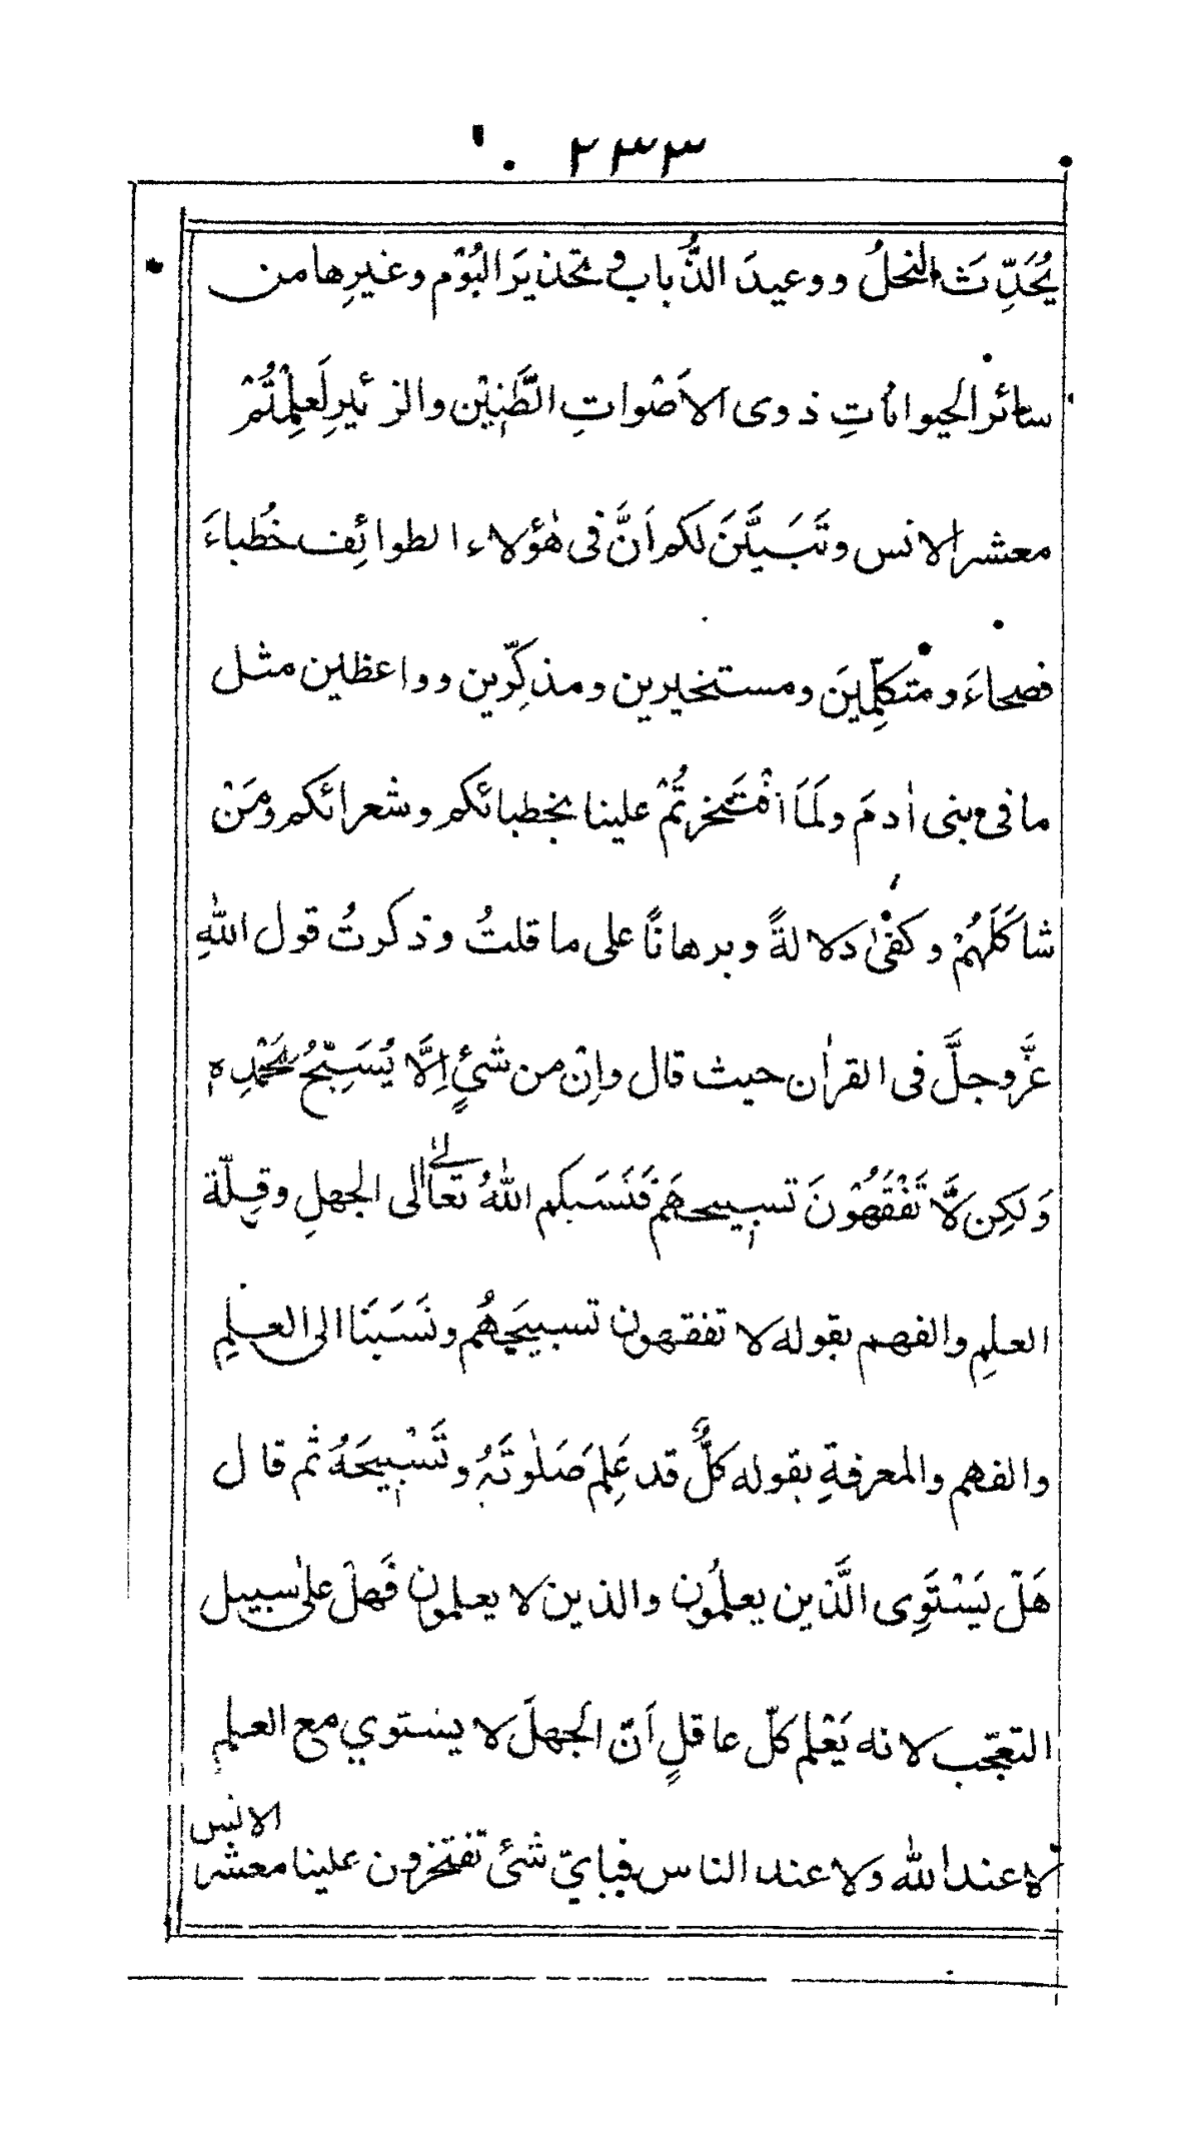 ٢٣٣
يُحَدِّثَ النحلُ ووعيدَ الذُّباب و تحذيرَ البُوْم وغيرِها من
سائر الحيواناتِ ذوى الاَصْواتِ الطَّنِيْن والزئيرِ لَعلِمْتُمْ
معشر الانس وتَبَيَّنَ لكم اَنَّ فى هٰؤلاء الطوائِف خُطباءَ
فصحاءَ ومتكلِّمينَ ومستخيرين ومذكِّرين وواعظين مثل
ما فى بنى اٰدمَ ولَمَا افْتَخرتُمْ علينا بخطبائكم وشعرائكم ومَنْ
شاكَلَهُمْ وكفٰى دلالةً وبرهانًا على ما قلتُ وذكرتُ قول اللّٰهِ
عزَّ وجلَّ فى القراٰن حيث قال وإنْ من شئٍ اِلَّا يُسَبِّحُ بِحَمْدِه
وَلكِن لَّا تَفْقَهُوْنَ تسبيحهَم فَنَسَبكم اللّٰهُ تعالٰى الى الجهلِ وقِلّة
العلمِ والفهم بقوله لا تفقهون تسبيحَهُم ونَسَبَنَا الى العلمِ
والفهم والمعرفةِ بقوله كلٌّ قد عَلِمَ صَلٰوتَهُ وتَسْبِيحَهُ ثم قال
هَلْ يَسْتَوِى الَّذين يعلمُون والذين لا يعلمون فَهلْ على سبيل
التعجّب لانه يَعْلم كلّ عاقلٍ اَنّ الجهلَ لا يستوي مع العلم
لا عند اللّٰه ولا عند الناس فبايّ شئ تفتخرون علينا معشر الانس